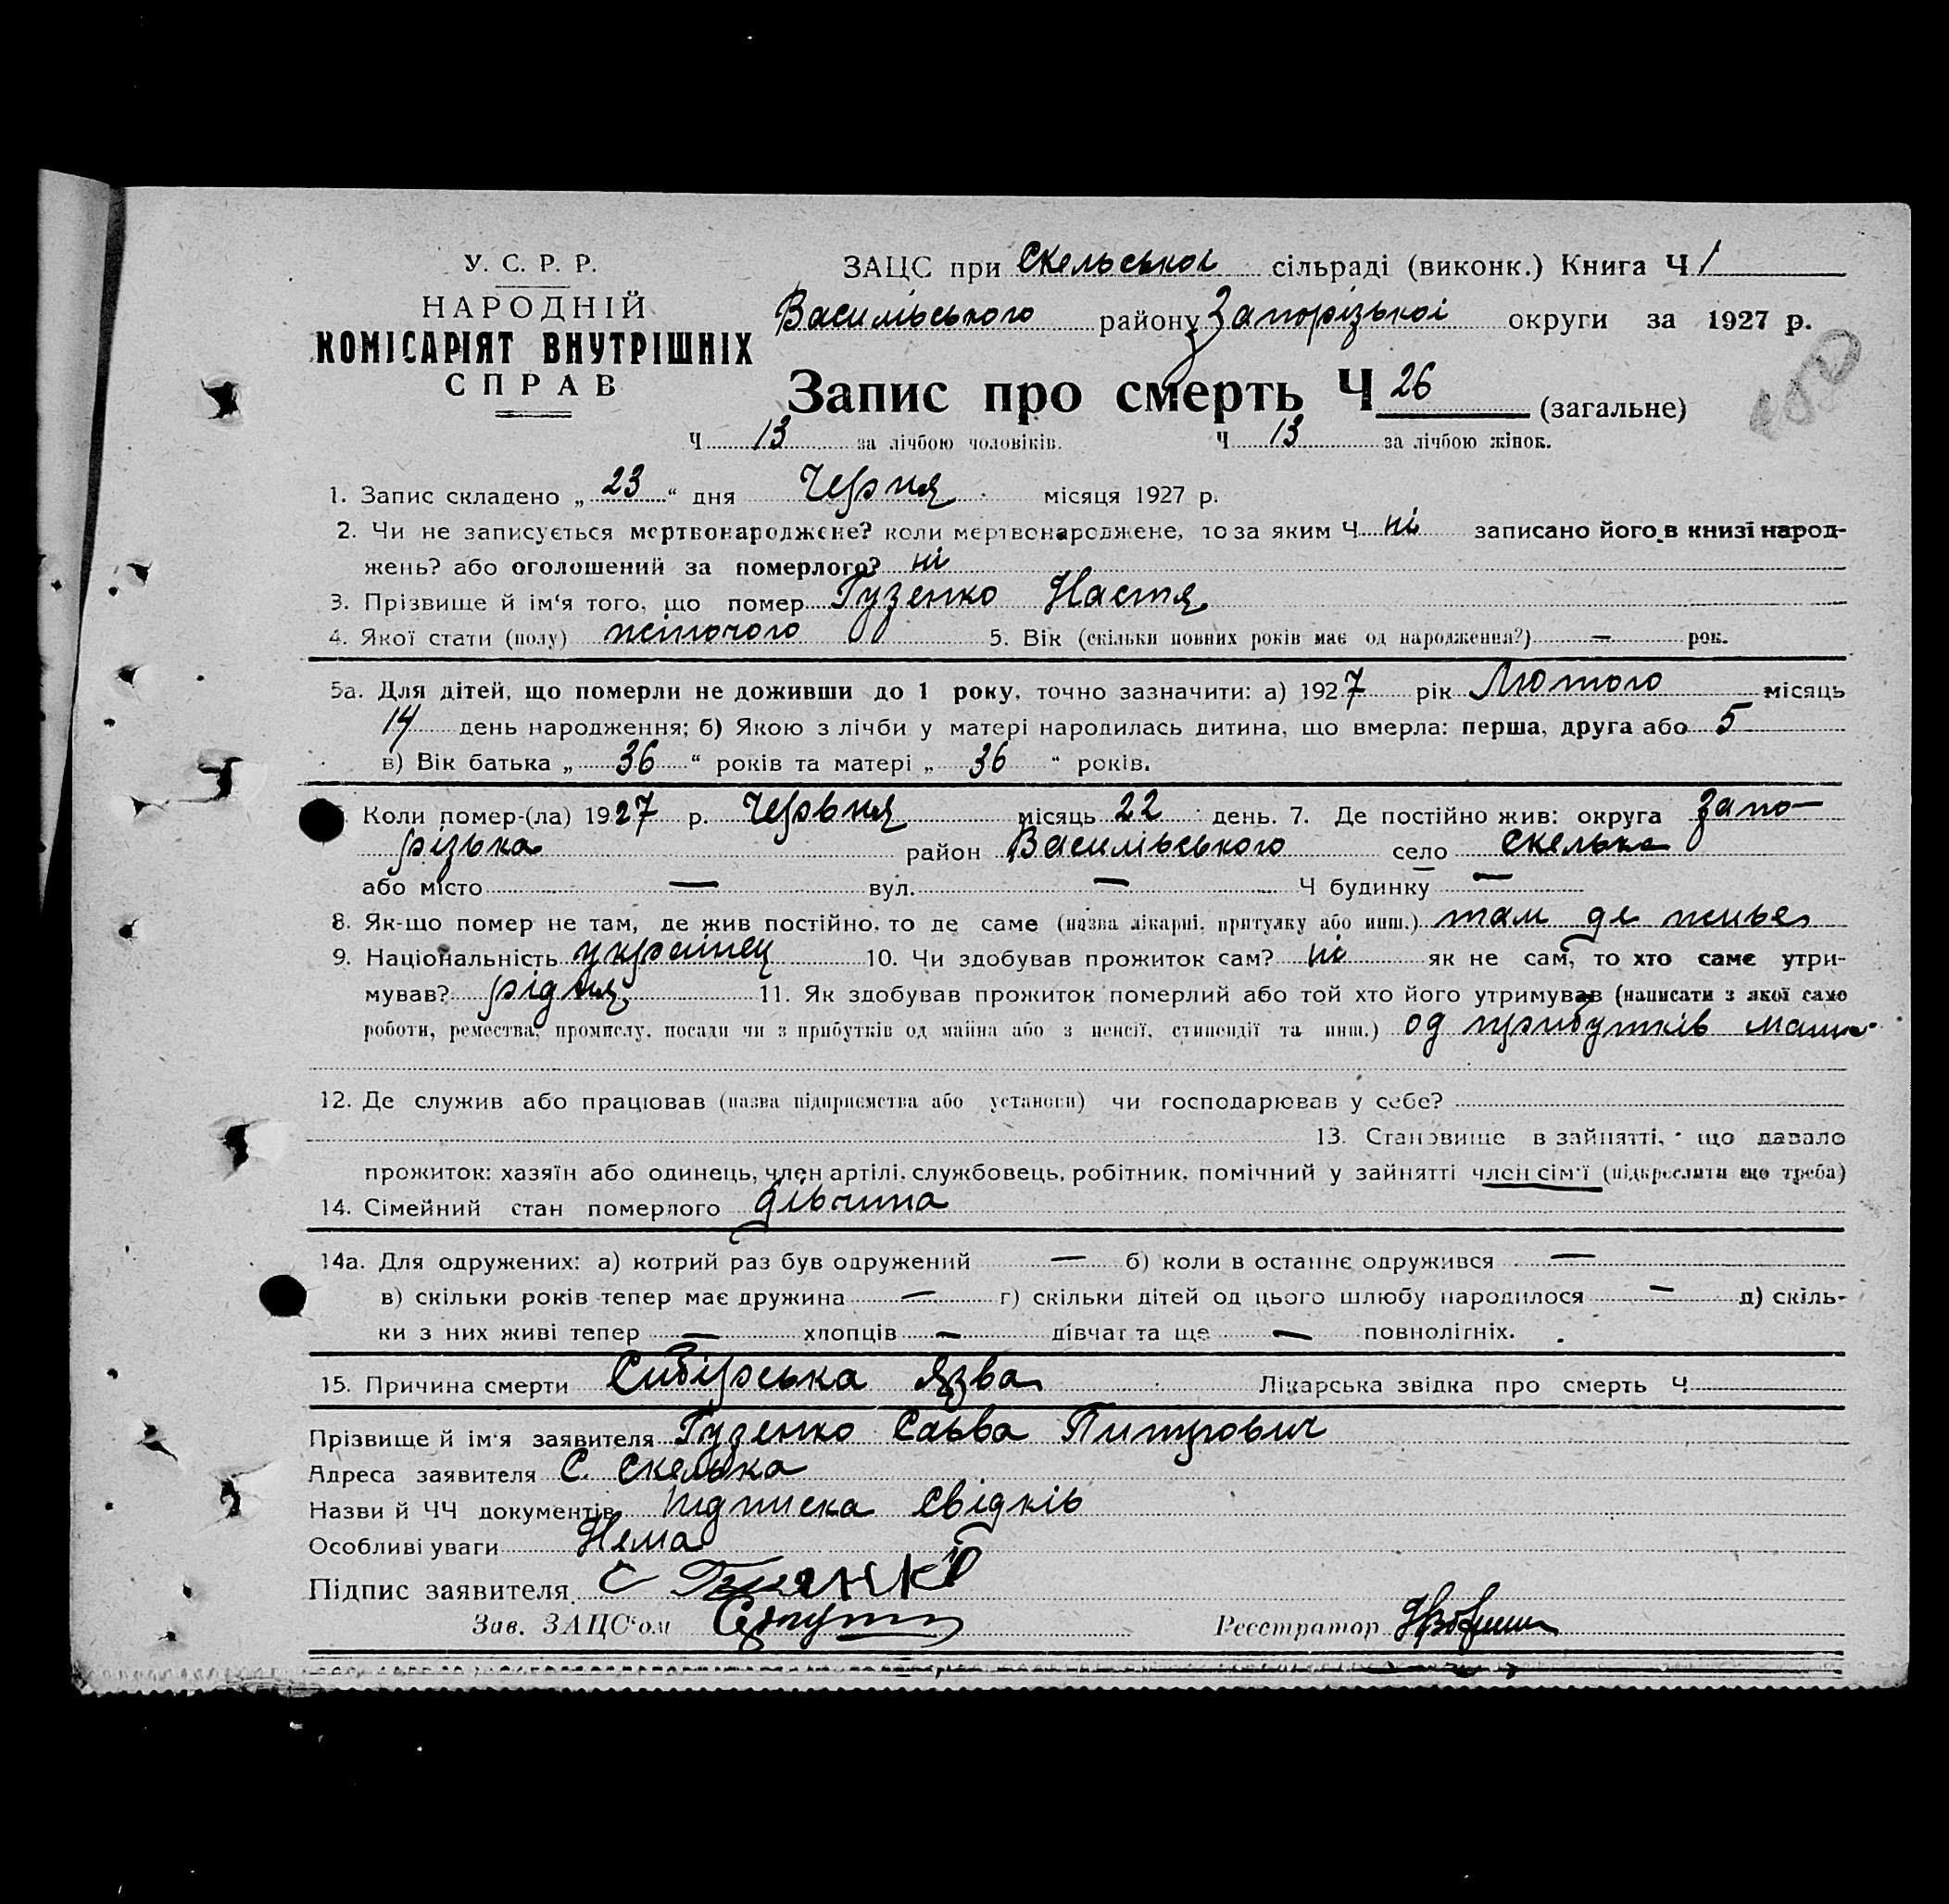 У. С. Р. Р.
НАРОДНІЙ
КОМІСАРІЯТ ВНУТРІШНІХ
СПРАВ
ЗАЦС при Скельської сільраді (виконк.) Книга Ч 1
Василівського району Запорізької округи за 1927 р.
Запис про смерть Ч 26 (загальне)
Ч 13 за лічбою чоловіків. Ч 13 за лічбою жінок.
1. Запис складено „ 23 “ дня Червня місяця 1927 р.
2. Чи не записується мертвонароджене? коли мертвонароджене, то за яким Ч ні записано його в книзі народ-
жень? або оголошений за померлого? ні
3. Прізвище й ім‘я того, що помер Гузенко Настя
4. Якої стати (полу) жіночого 5. Вік (скільки повних років має од народження?) — рок.
5а. Для дітей, що померли не доживши до 1 року, точно зазначити: а) 1927 рік Лютого місяць
14 день народження; б) Якою з лічби у матері народилась дитина, що вмерла: перша, друга або 5
в) Вік батька „ 36 “ років та матері „ 36 “ років.
Коли помер-(ла) 1927 р. Червня місяць 22 день. 7. Де постійно жив: округа Запо-
різька район Василівського село Скелька
або місто — вул. — Ч будинку —
8. Як-що помер не там, де жив постійно, то де саме (назва лікарні, притулку або инш.) там де живе
9. Національність українец 10. Чи здобував прожиток сам? ні як не сам, то хто саме утри-
мував? рідня 11. Як здобував прожиток померлий або той хто його утримував (написати з якої само
роботи, ремества, промислу, посади чи з прибутків од майна або з пенсії, стипендії та инш.) од прибутків майна
12. Де служив або працював (назва підприємства або установи) чи господарював у себе?
13. Становище в зайнятті, що давало
прожиток: хазяїн або одинець, член артілі, службовець, робітник, помічний у зайнятті член сім‘ї (підкреслити що треба)
14. Сімейний стан померлого дівчина
14а. Для одружених: а) котрий раз був одружений — б) коли в останнє одружився —
в) скільки років тепер має дружина — г) скільки дітей од цього шлюбу народилося — д) скіль-
ки з них живі тепер — хлопців — дівчат та ще — повнолітніх.
15. Причина смерти Сибірська язва Лікарська звідка про смерть Ч
Прізвище й ім‘я заявителя Гузенко Савва Питрович
Адреса заявителя С. Скелька
Назви й ЧЧ документів Підписка свідків
Особливі уваги Нема
Підпис заявителя С
Зав. ЗАЦС‘ом
Реєстратор